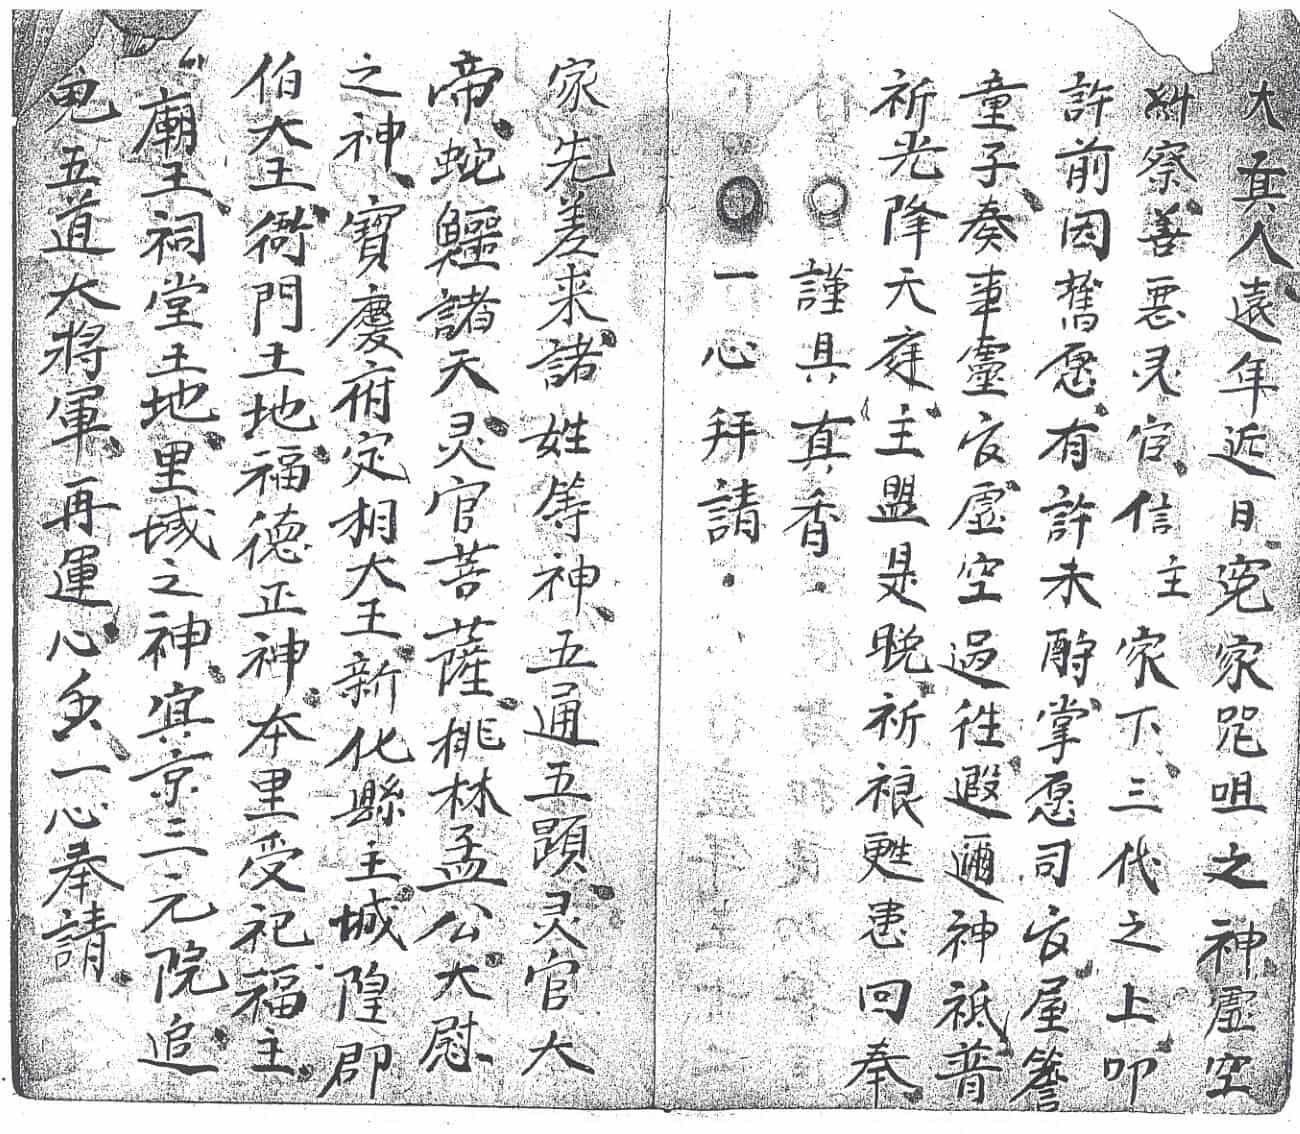 大真人遠年近日寃家咒咀之神虛空
糾察善惡灵官信主家下三代之上叩
許前因舊愿有許未酧掌愿司官屋簷
童子奏事靈官虛空過往遐邇神祇普
祈光降天庭主盟是晚祈禳甦患回奉
謹具真香
一心拜請
家先差来諸姓等神五通五顕灵官大
帝蛇鱷諸天灵官菩薩桃林孟公大慰
之神寳慶府定相大王新化縣主城隍郡
伯大王衙門土地福德正神本里受祀福主
廟王祠堂土地里域之神冥京三元院追
䰟五道大將軍再運心香一心奉請